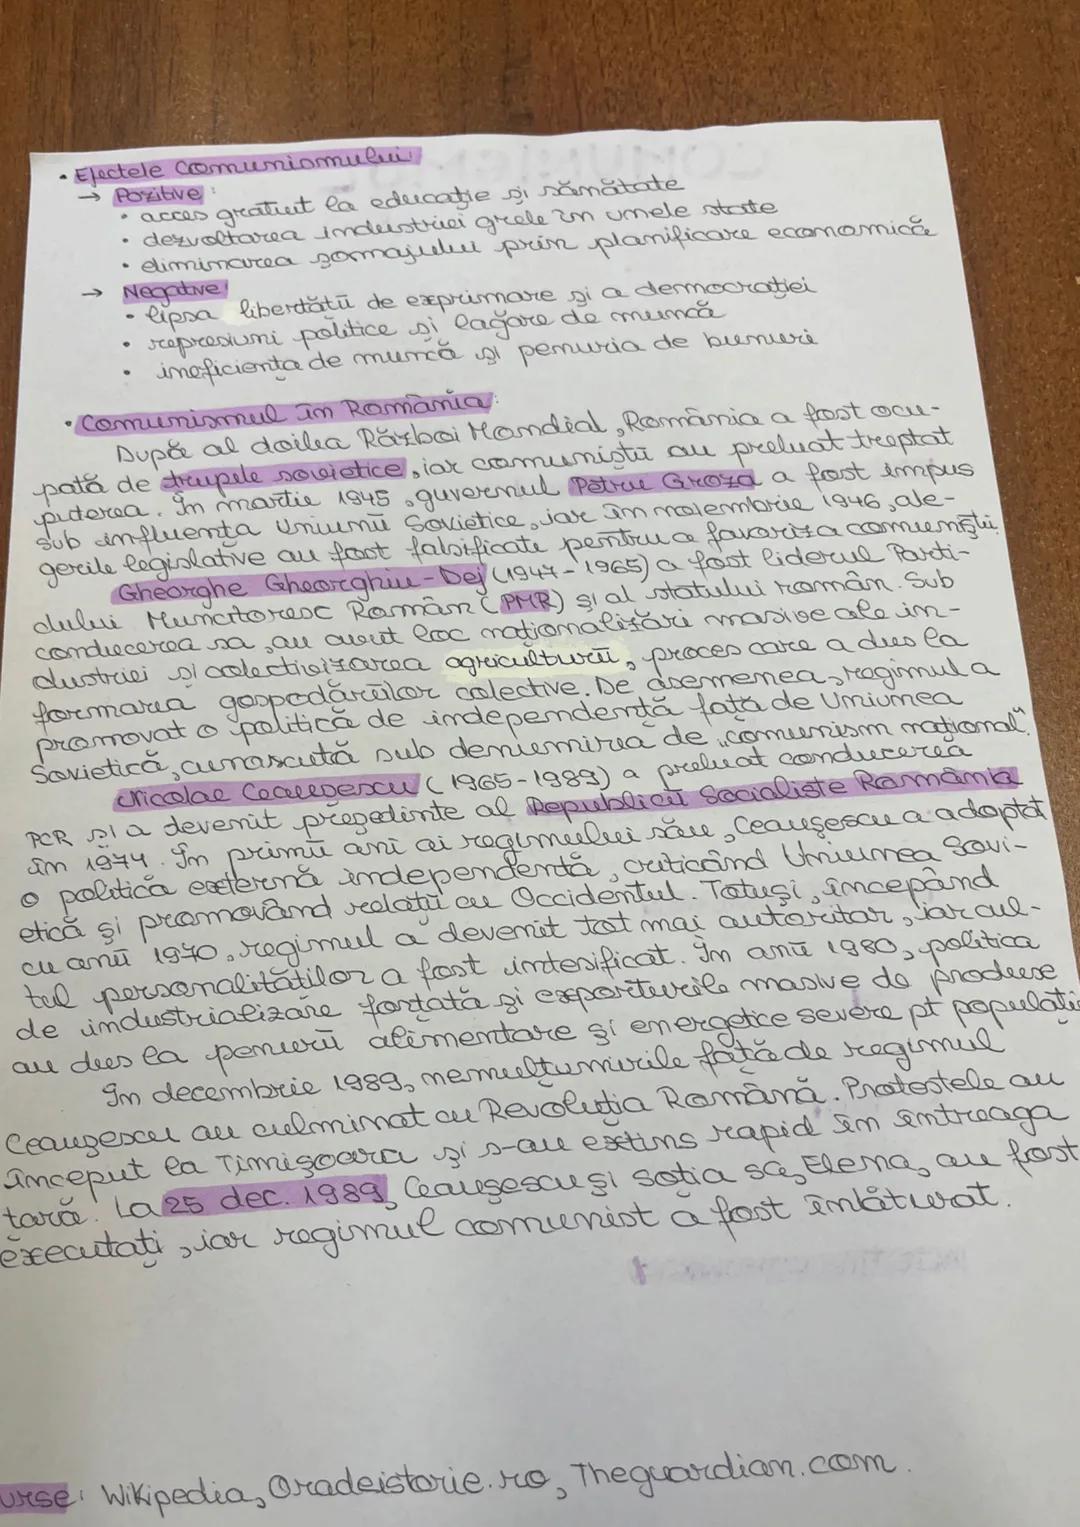 • Efectele Comunismului:
→ Pozitive:
• acces gratuit la educație și sănătate
• dezvoltarea industriei grele în unele state
• eliminarea șomajului prin planificare economică
→ Negative:
• lipsa libertății de exprimare și a democrației
• represiuni politice și lagăre de muncă
• ineficiența de muncă și penuria de bunuri
• Comunismul în România:
După al doilea Război Mondial, România a fost ocu-
pată de trupele sovietice, iar comuniștii au preluat treptat
puterea. În martie 1945, guvernul Petru Groza a fost impus
sub influența Uniunii Sovietice, iar în noiembrie 1946, ale-
gerile legislative au fost falsificate pentru a favoriza comuniștii.
Gheorghe Gheorghiu-Dej (1947-1965) a fost liderul Parti-
dului Muncitoresc Român (PMR) și al statului român. Sub
conducerea sa, au avut loc naționalizări masive ale in-
dustriei și colectivizarea agriculturii, proces care a dus la
formarea gospodăriilor colective. De asemenea, regimul a
promovat o politică de independență față de Uniunea
Sovietică, cunoscută sub denumirea de „comunism național".
Nicolae Ceaușescu (1965-1989) a preluat conducerea
PCR și a devenit președinte al Republicii Socialiste România
în 1974. În primii ani ai regimului său, Ceaușescu a adoptat
o politică externă independentă, criticând Uniunea Sovi-
etică și promovând relații cu Occidentul. Totuși, începând
cu anii 1970, regimul a devenit tot mai autoritar, iar cul-
tul personalităților a fost intesificat. În anii 1980, politica
de industrializare forțată și exporturile masive de produse
au dus la penurii alimentare și energetice severe pt populați
În decembrie 1989, nemulțumirile față de regimul
Ceaușescu au culminat cu Revoluția Română. Protestele au
început la Timișoara și s-au extins rapid în întreaga
țară. La 25 dec. 1989, Ceaușescu și soția sa, Elena, au fost
executați, iar regimul comunist a fost înlăturat.
urse: Wikipedia, Oradeistorie.ro, Theguardian.com.